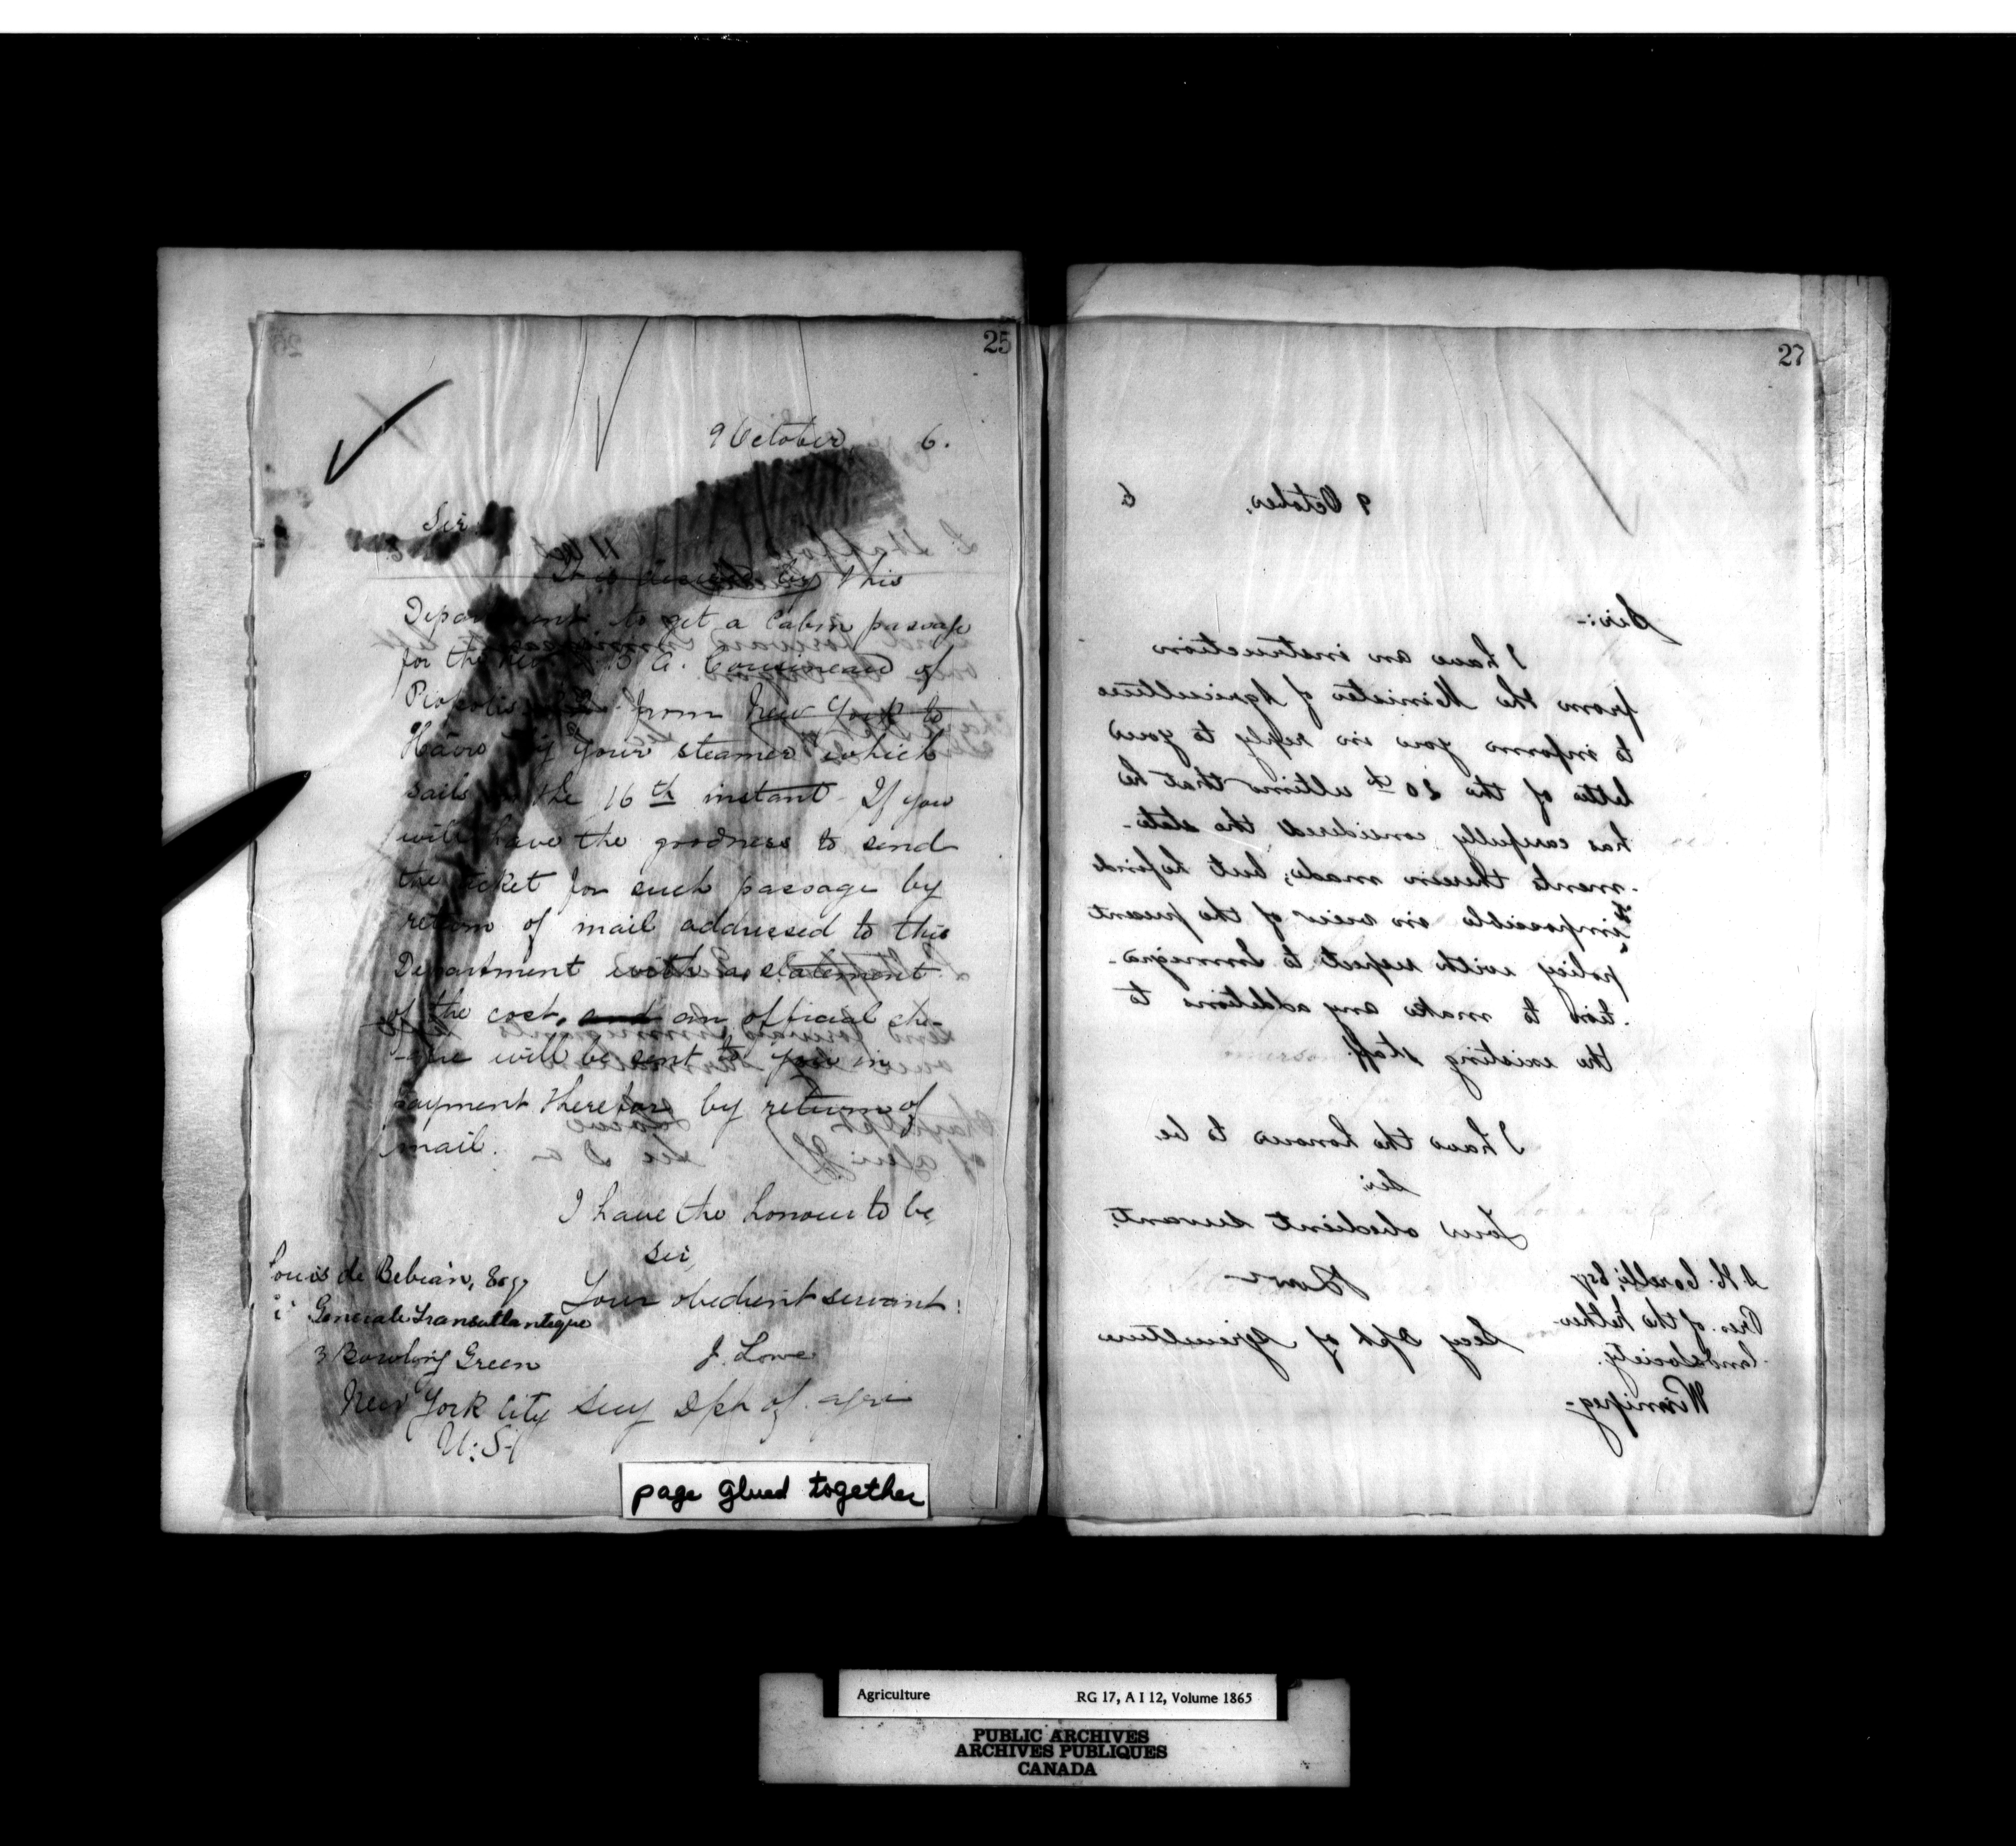 25
9 October, 6.
Sir
It is desired by this
Department to get a Cabin passage
for the Rev. B A. Cousineau of
from New York to
Havre by your steamer which
sails on the 16th instant. If you
will have the goodness to send
the ticket for such passage by
return of mail addressed to this
Department with a statement
of the cost, and an official che-
-que will be sent to you in
payment therefore by return of
mail.
I have the honour to be,
Sir,
Your obedient servant:
J. Lowe
Secy Dpt of Agri
Louis de Bebian, Esq
Generale Transatlantique
3 Bowling Green
New York City
U.S.
page glued together
27
9 October, 6
Sir:-
I have an instruction
from the Minister of Agriculture
to inform you in reply to your
letter of the 20th ultimo that he
has carefully considered the state-
-ments therein made, but he finds
it impossible in view of the present
policy with respect to Immigra-
-tion to make any additions to
the existing staff.
I have the honour to be
Sir
Your obedient servant.
J Lowe
Secy Dpt of Agriculture
A. H. Corelli, Esq
Pres. of the Father
land Society.
Winnipeg-
Agriculture RG 17, A I 12, Volume 1865
PUBLIC ARCHIVES
ARCHIVES PUBLIQUES
CANADA